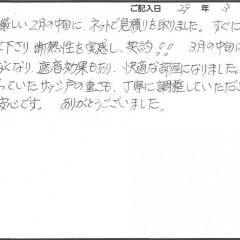 ご記入日 29 年 3
厳しい2月の中旬に、ネットで見積りを取りました。すぐに
て下さり断熱性を実感し、契約!! 3月の中旬に
なくなり、遮音効果もあり、快適な部屋になりました。
っていたサッシ戸の重さも、丁寧に調整していただ
安心です。 ありがとうございました。